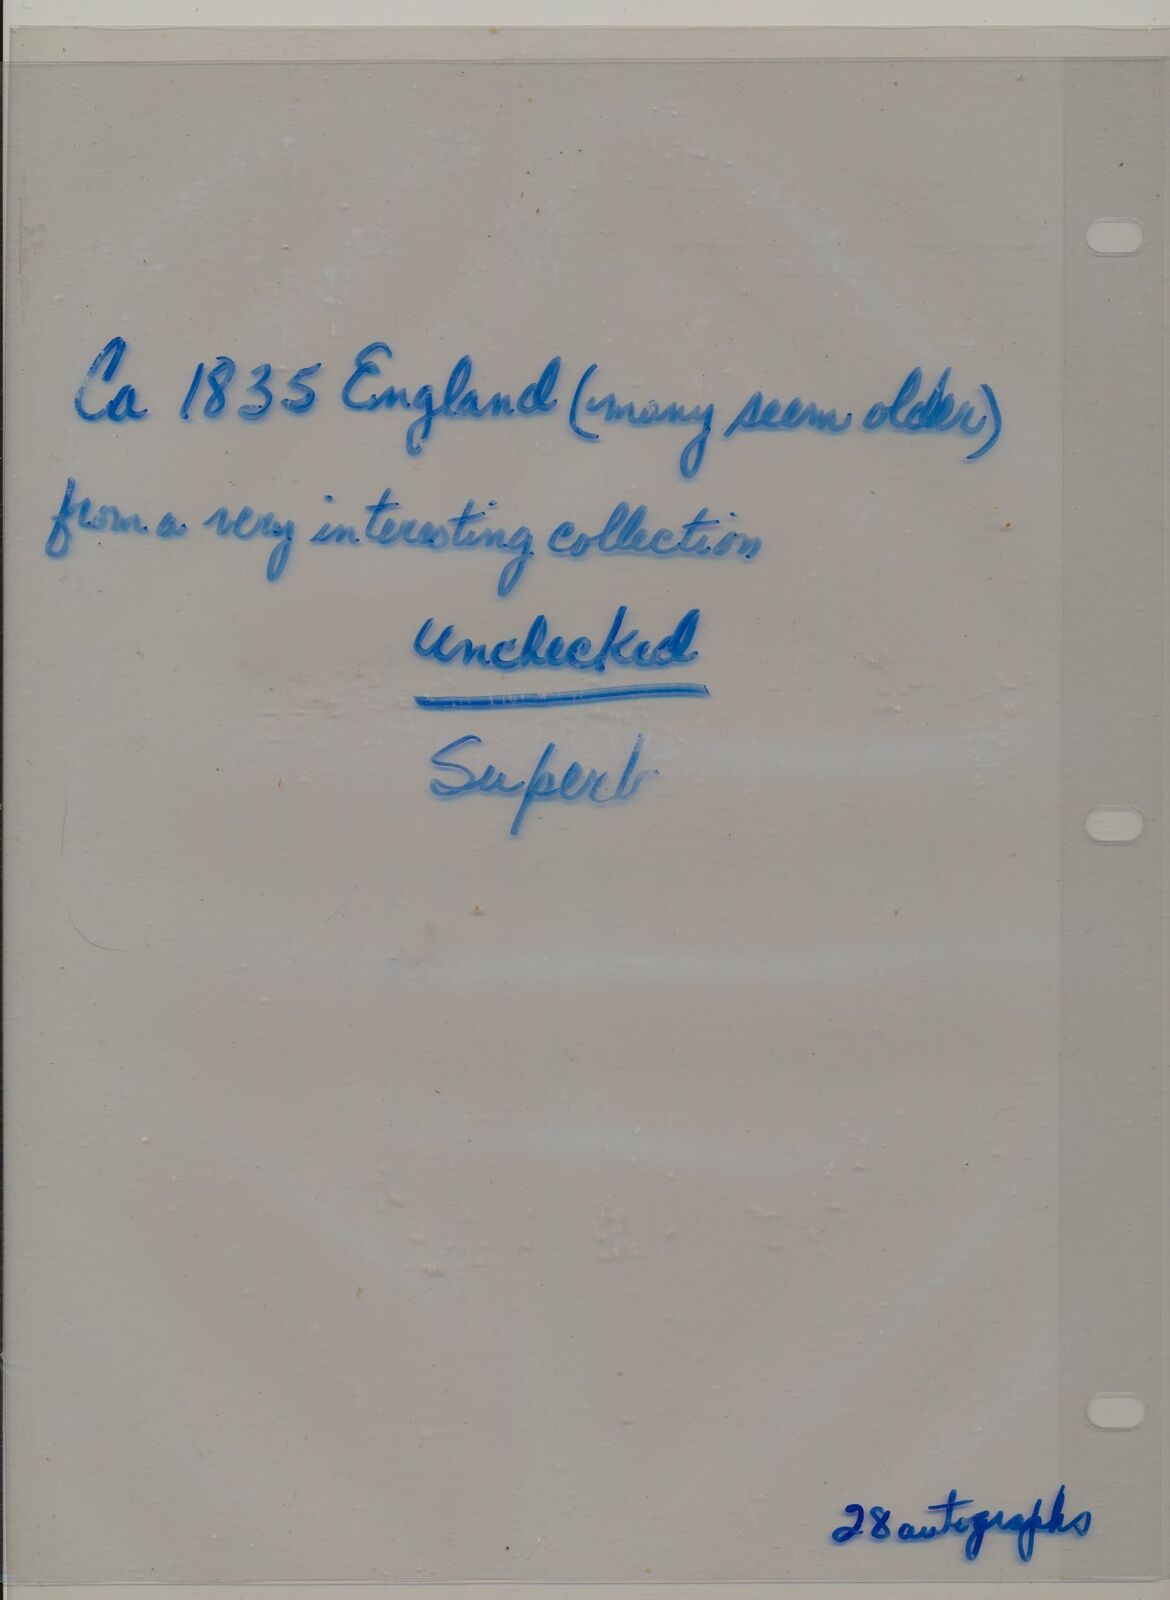 Ca 1835 England (many seem older)
from a very interesting collection
Unchecked
Superb
28 autographs